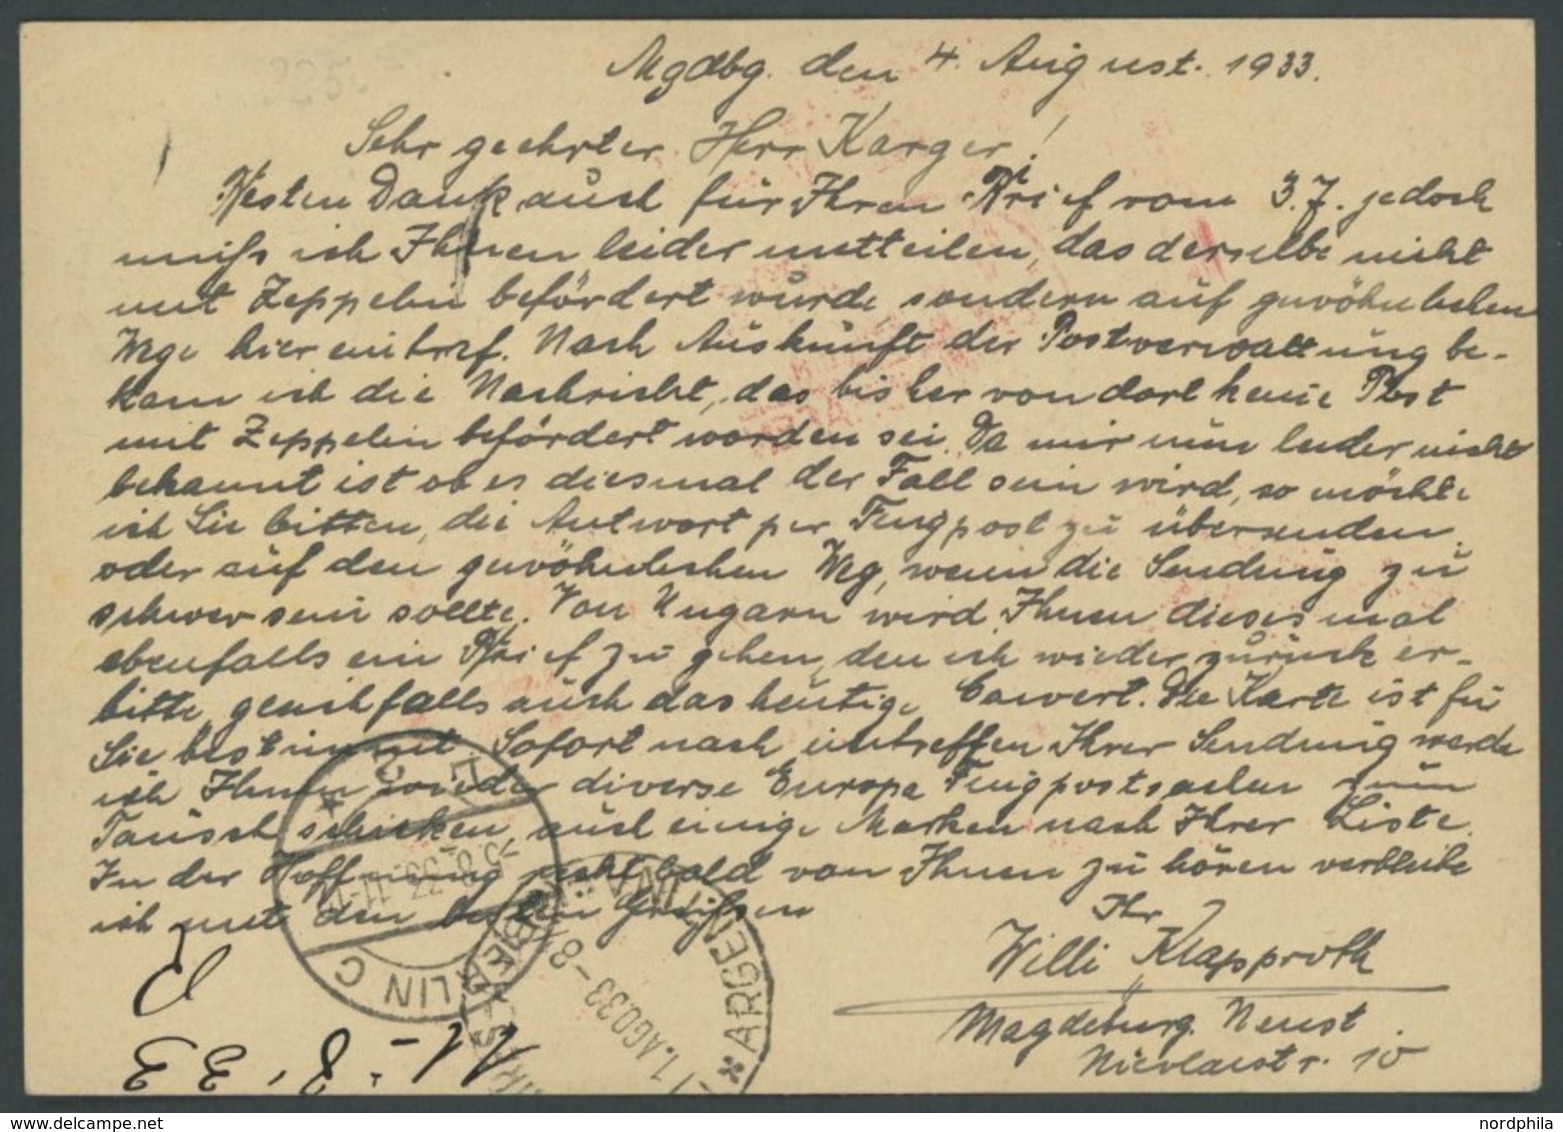 Mgdbg. den 4. August. 1933.
Sehr geehrter Herr Karger!
Besten Dank auch für Ihren Brief vom 3.7. jedoch
muß ich Ihnen leider mitteilen, das derselbe nicht
mit Zeppelin befördert wurde sondern auf gewöhnlichen
Wege hier eintraf. Nach Auskunft der Postverwaltung be-
kam ich die Nachricht, das bisher von dort keine Post
mit Zeppelin befördert worden sei. Da mir nun leider nicht
bekannt ist ob es diesmal der Fall sein wird, so möchte
ich Sie bitten, die Antwort per Flugpost zu übersenden
oder auf den gewöhnlichen Weg, wenn die Sendung zu
schwer sein sollte. Von Ungarn wird Ihnen diesesmal
ebenfalls ein Brief zu gehen, den ich wieder zurück er-
bitte, gleichfalls auch das heutige Cowert. Die Karte ist für
Sie bestimmt. Sofort nach eintreffen Ihrer Sendung werde
ich Ihnen wieder diverse Europa Flugpostsachen zum
Tausch schicken, auch einige Marken nach Ihrer Liste.
In der Hoffnung recht bald von Ihnen zu hören verbleibe
ich mit den besten Grüßen
Ihr
Willi Klapproth
Magdeburg. Neust.
Nicolaistr. 10
BERLIN C
ARGENTINA
1.AGO.33-8
11-8.33
nordphila